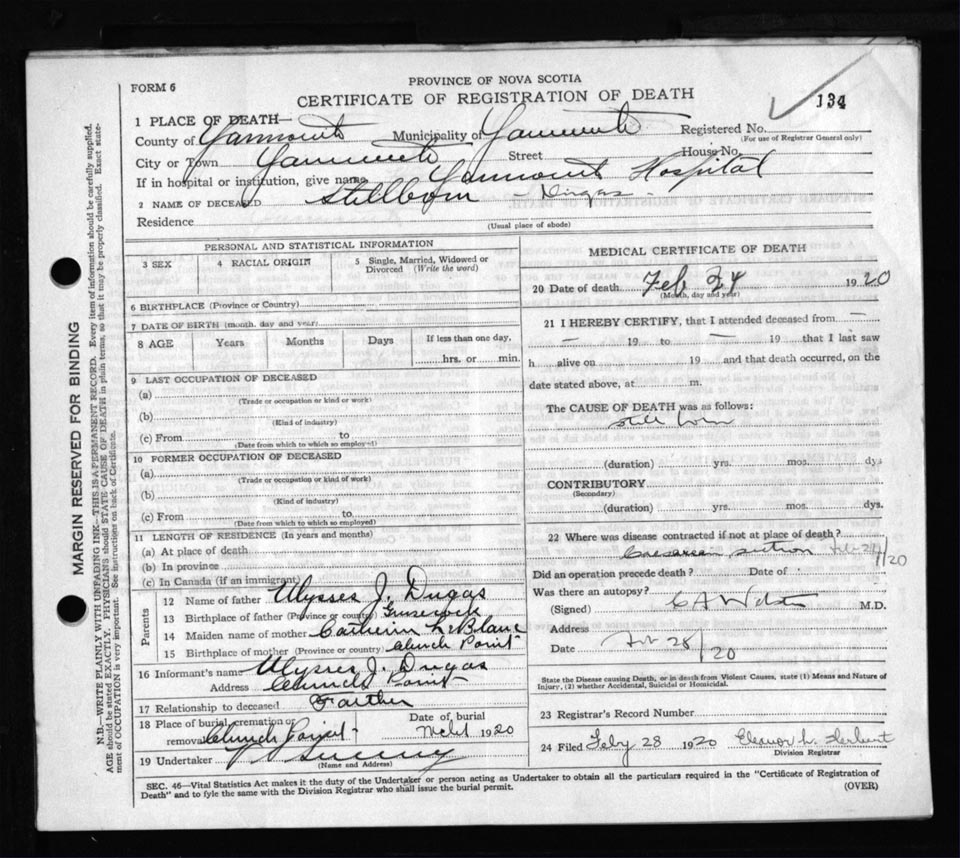 PROVINCE OF NOVA SCOTIA
FORM 6
CERTIFICATE OF REGISTRATION OF DEATH
134
1 PLACE OF DEATH—
County of Yarmouth Municipality of Yarmouth Registered No.
(For use of Registrar General only)
City or Town Yarmouth Street House No.
If in hospital or institution, give name Yarmouth Hospital
2 NAME OF DECEASED Stillborn - Dugas -
Residence
(Usual place of abode)
PERSONAL AND STATISTICAL INFORMATION
3 SEX 4 RACIAL ORIGIN 5 Single, Married, Widowed or
Divorced (Write the word)
6 BIRTHPLACE (Province or Country)
7 DATE OF BIRTH (month, day and year)
8 AGE Years Months Days If less than one day,
hrs. or min.
9 LAST OCCUPATION OF DECEASED
(a)
(Trade or occupation or kind or work)
(b)
(Kind of industry)
(c) From to
(Date from which to which so employed)
10 FORMER OCCUPATION OF DECEASED
(a)
(Trade or occupation or kind of work)
(b)
(Kind of industry)
(c) From to
(Date from which to which so employed)
11 LENGTH OF RESIDENCE (In years and months)
(a) At place of death
(b) In province
(c) In Canada (if an immigrant)
Parents
12 Name of father Ulysses J. Dugas
13 Birthplace of father (Province or country)
14 Maiden name of mother Catherin LeBlanc
15 Birthplace of mother (Province or country) Church Point
16 Informant's name Ulysses J. Dugas
Address Church Point
17 Relationship to deceased Farther
18 Place of burial, cremation or Date of burial
removal Church Point 1920
19 Undertaker
(Name and Address)
MEDICAL CERTIFICATE OF DEATH
20 Date of death Feb 24 1920
(Month, day and year)
21 I HEREBY CERTIFY, that I attended deceased from —
— 19 to — 19 that I last saw
h alive on 19 and that death occurred, on the
date stated above, at m.
The CAUSE OF DEATH was as follows:
still born
(duration) yrs. mos. dys
CONTRIBUTORY
(Secondary)
(duration) yrs. mos. dys.
22 Where was disease contracted if not at place of death?
Caesarean section Feb 24/20
Did an operation precede death? Date of
Was there an autopsy?
(Signed) M.D.
Address
Date Feb 28/20
State the Disease causing Death, or in death from Violent Causes, state (1) Means and Nature of
Injury, (2) whether Accidental, Suicidal or Homicidal.
23 Registrar's Record Number
24 Filed Feby 28 1920 Eleanor L. Herbert
Division Registrar
SEC. 46—Vital Statistics Act makes it the duty of the Undertaker or person acting as Undertaker to obtain all the particulars required in the "Certificate of Registration of
Death" and to fyle the same with the Division Registrar who shall issue the burial permit.
(OVER)
MARGIN RESERVED FOR BINDING
N.B.—WRITE PLAINLY WITH UNFADING INK—THIS IS A PERMANENT RECORD. Every item of information should be carefully supplied.
AGE should be stated EXACTLY. PHYSICIANS should STATE CAUSE OF DEATH in plain terms, so that it may be properly classified. Exact state-
ment of OCCUPATION is very important. See instructions on back of Certificate.